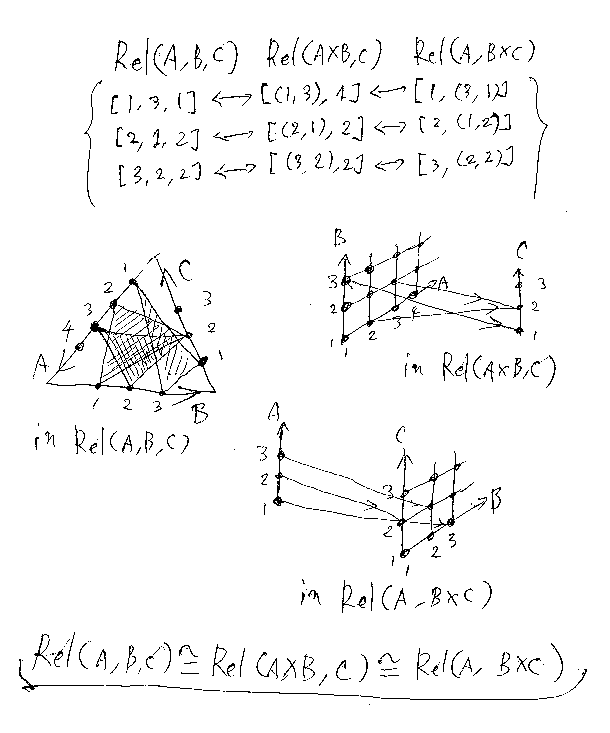 Rel(A,B,C) Rel(A×B,C) Rel(A,B×C)
[1,3,1] ↔ [(1,3),1] ↔ [1,(3,1)]
[2,1,2] ↔ [(2,1),2] ↔ [2,(1,2)]
[3,2,2] ↔ [(3,2),2] ↔ [3,(2,2)]
B
C
C
1
2
3
3
4
A
2
1
1 2 3
B
in Rel(A,B,C)
3
2
1
1 2 3 4
A
3
2
1
in Rel(A×B,C)
A
3
2
1
C
3
2
1
1 2 3
B
in Rel(A,B×C)
Rel(A,B,C) ≅ Rel(A×B,C) ≅ Rel(A, B×C)